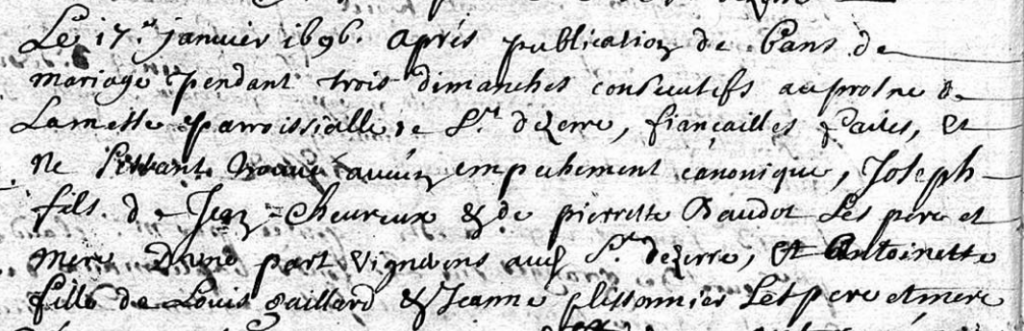 Le 17.e janvier 1696. Après publication de bans de
mariage pendant trois dimanches consecutifs au prosne de
La messe parroissialle de St. dezerre, fiançailles faites, et
ne sestant trouvé aucun empechement canonique, Joseph
fils de Jean cheureux & de pierrette Baudot Les pere et
mere d'une part vignerons aud St. dezerre, Et Antoinette
fille de Louis gaillard & Jeanne plissonnier Les pere et mere